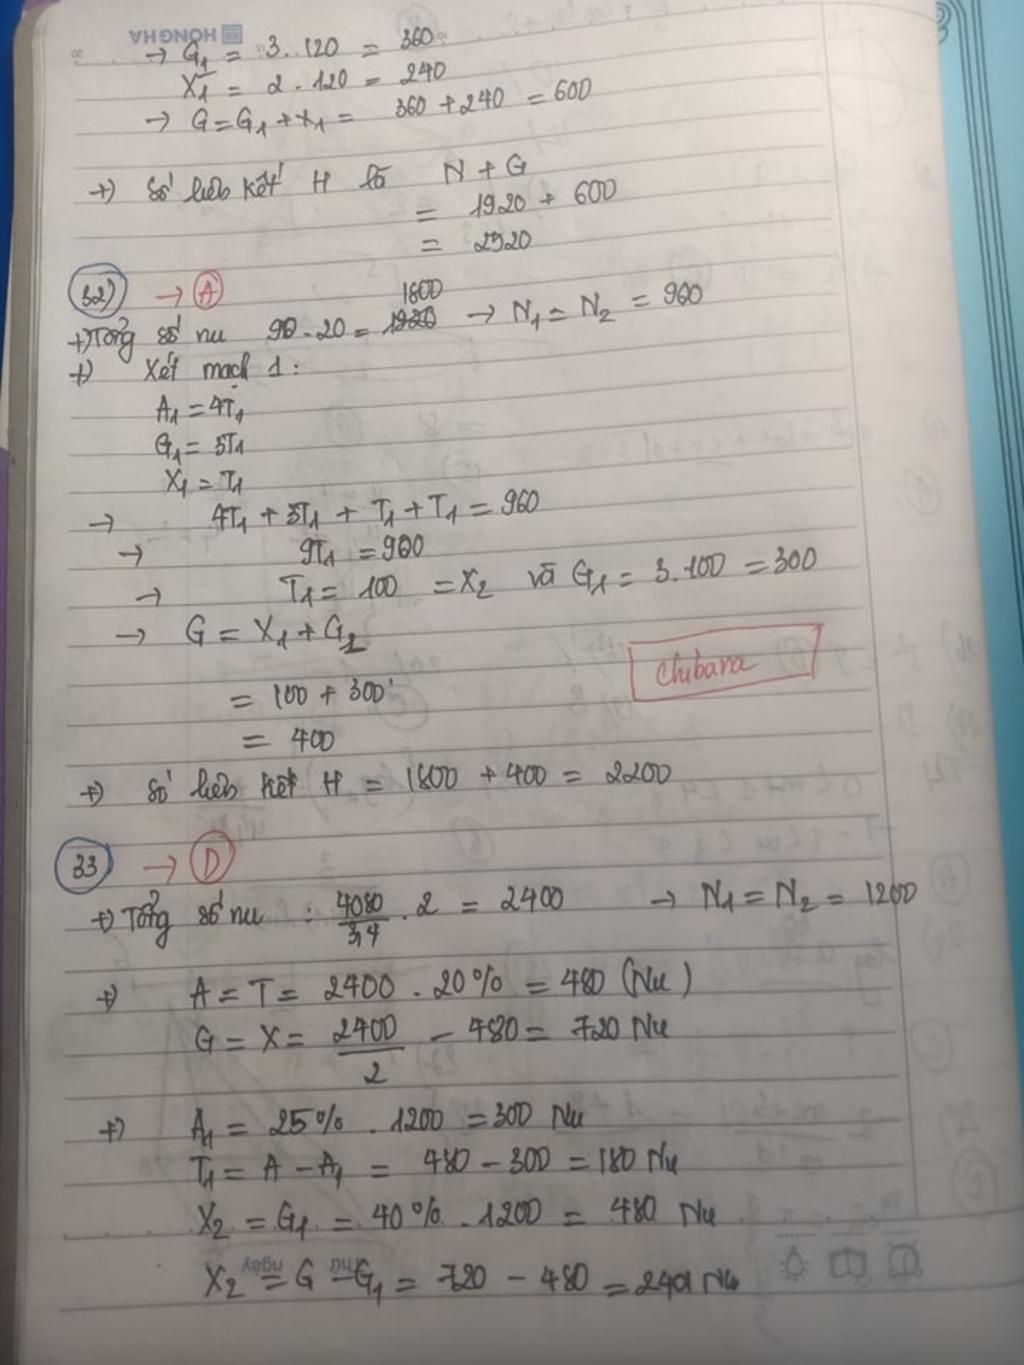 HONG HA
→ G1 = 3. 120 = 360
X1 = 2 . 120 = 240
→ G = G1 + X1 = 360 + 240 = 600
+) Số liên kết H là N + G
= 1920 + 600
= 2520
32) → A
+) Tổng số nu 90 . 20 = 1800 → N1 = N2 = 900
+) Xét mạch 1:
A1 = 4T1
G1 = 3T1
X1 = T1
→ 4T1 + 3T1 + T1 + T1 = 900
→ 9T1 = 900
→ T1 = 100 = X2 và G1 = 3.100 = 300
→ G = X1 + G2
Chibana
= 100 + 300
= 400
+) Số liên kết H = 1800 + 400 = 2200
33 → D
+) Tổng số nu : 4080/3,4 . 2 = 2400 → N1 = N2 = 1200
+) A = T = 2400 . 20% = 480 (Nu)
G = X = 2400/2 - 480 = 720 Nu
+) A1 = 25% . 1200 = 300 Nu
T1 = A - A1 = 480 - 300 = 180 Nu
X2 = G1 = 40% . 1200 = 480 Nu
X2 = G - G1 = 720 - 480 = 240 Nu